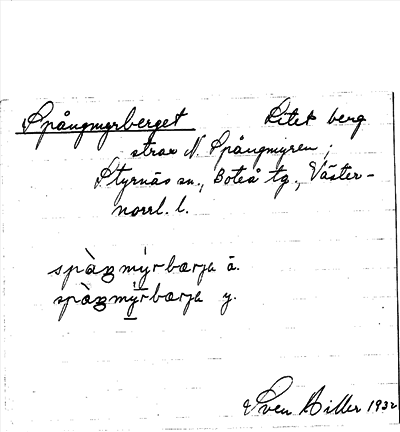 Spångmyrberget Litet berg
strax N. Spångmyren ;
Styrnäs sn., Boteå tg., Väster-
norrl. l.
spàŋmýrbærja ä.
spàŋmýrbærja y.
Sven Hiller 1932